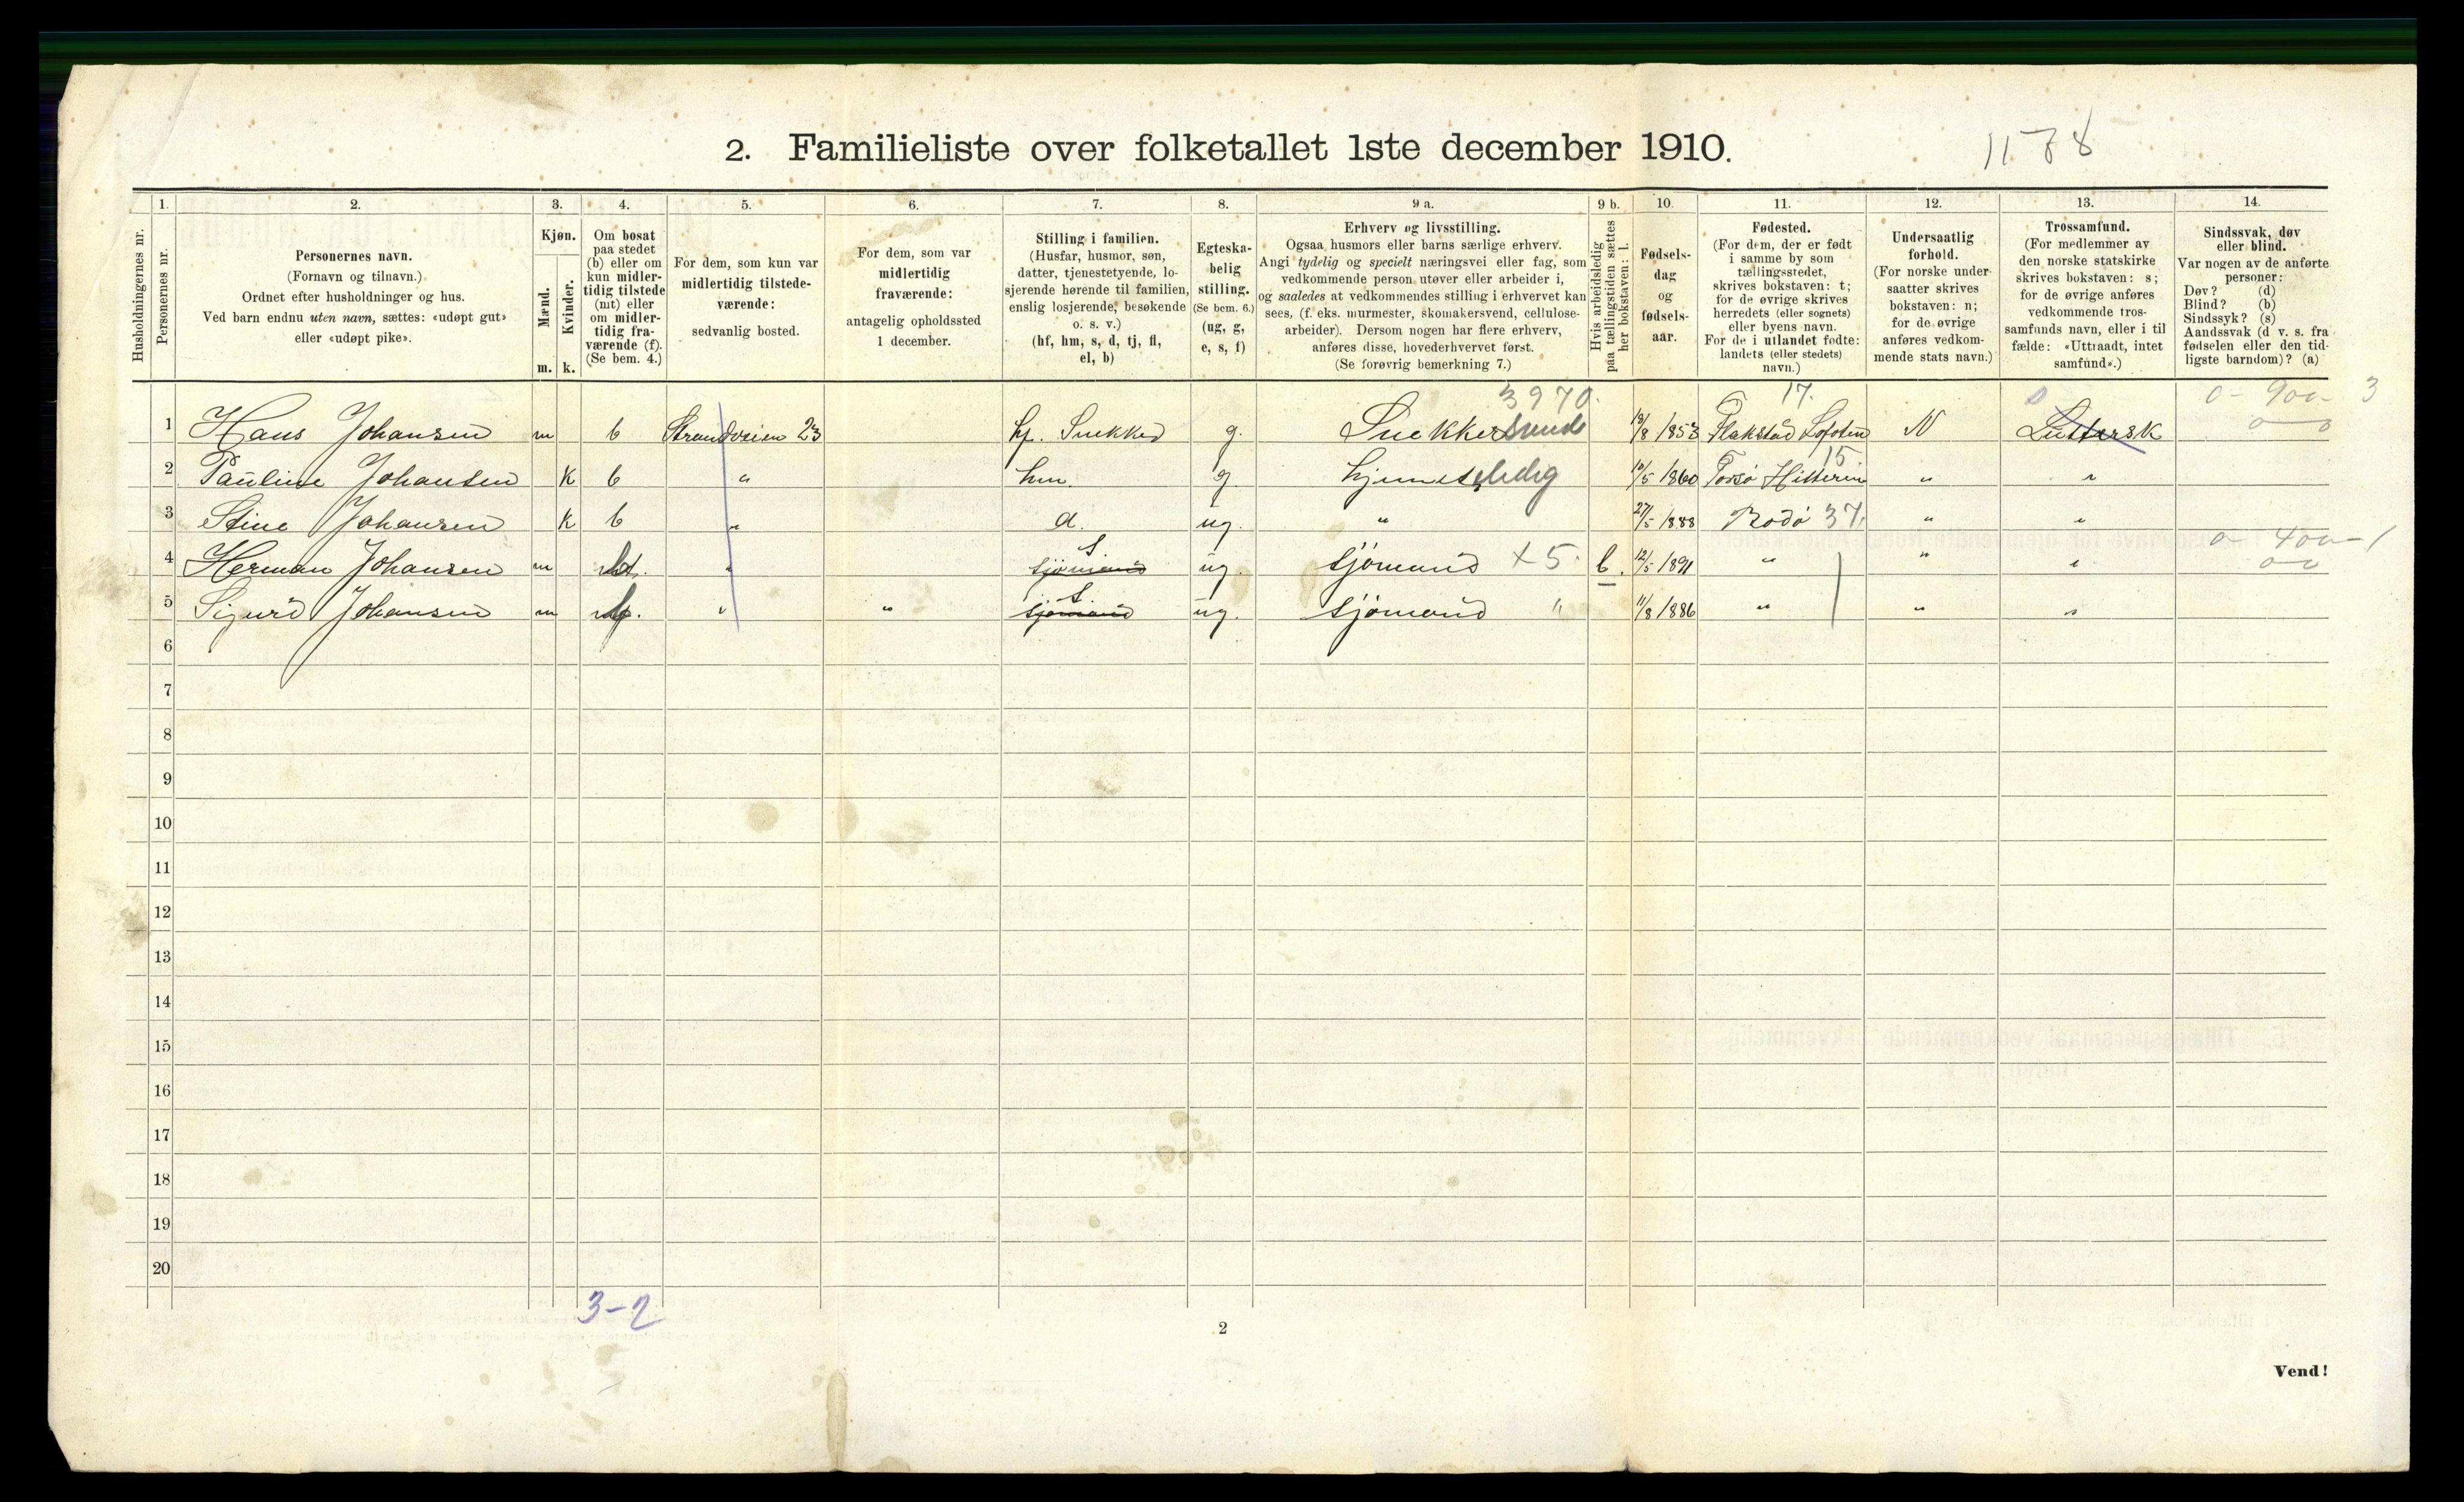 2. Familieliste over folketallet 1ste december 1910.
1178
Husholdningernes nr.
1. Personernes nr.
2. Personernes navn.
(Fornavn og tilnavn.)
Ordnet efter husholdninger og hus.
Ved barn endnu uten navn, sættes: «udøpt gut»
eller «udøpt pike».
3. Kjøn.
Mænd. Kvinder.
m. k.
4. Om bosat
paa stedet
(b) eller om
kun midler-
tidig tilstede
(mt) eller
om midler-
tidig fra-
værende (f).
(Se bem. 4.)
5. For dem, som kun var
midlertidig tilstede-
værende:
sedvanlig bosted.
6. For dem, som var
midlertidig
fraværende:
antagelig opholdssted
1 december.
7. Stilling i familien.
(Husfar, husmor, søn,
datter, tjenestetyende, lo-
sjerende hørende til familien,
enslig losjerende, besøkende
o. s. v.)
(hf, hm, s, d, tj, fl,
el, b)
8. Egteska-
belig
stilling.
(Se bem. 6.)
(ug, g,
e, s, f)
9 a. Erhverv og livsstilling.
Ogsaa husmors eller barns særlige erhverv.
Angi tydelig og specielt næringsvei eller fag, som
vedkommende person utøver eller arbeider i,
og saaledes at vedkommendes stilling i erhvervet kan
sees, (f. eks. murmester, skomakersvend, cellulose-
arbeider). Dersom nogen har flere erhverv,
anføres disse, hovederhvervet først.
(Se forøvrig bemerkning 7.)
9 b. Hvis arbeidsledig
paa tællingstiden sættes
her bokstaven: l.
10. Fødsels-
dag
og
fødsels-
aar.
11. Fødested.
(For dem, der er født
i samme by som
tællingsstedet,
skrives bokstaven: t;
for de øvrige skrives
herredets (eller sognets)
eller byens navn.
For de i utlandet fødte:
landets (eller stedets)
navn.)
12. Undersaatlig
forhold.
(For norske under-
saatter skrives
bokstaven: n;
for de øvrige
anføres vedkom-
mende stats navn.)
13. Trossamfund.
(For medlemmer av
den norske statskirke
skrives bokstaven: s;
for de øvrige anføres
vedkommende tros-
samfunds navn, eller i til
fælde: «Uttraadt, intet
samfund».)
14. Sindssvak, døv
eller blind.
Var nogen av de anførte
personer:
Døv? (d)
Blind? (b)
Sindssyk? (s)
Aandssvak (d v. s. fra
fødselen eller den tid-
ligste barndom)? (a)
3970. 17. 0 - 900 - 3
1 Hans Johansen m b Strandveien 23 hf. Snekker g. Snekkersvend 13/8 1853 Flakstad Lofoten N Luttersk 0 0
15
2 Pauline Johansen k b " hm g. hjemme ledig 10/5 1860 "  "
3 Stine Johansen k b " d. ug. " 27/5 1888 Rodø 37. " "
0 - 400 - 1
4 Herman Johansen m " s sjömand ug. sjömand x 5. l. 12/5 1891 " " " 0 0
5 Sigurd Johansen m f. " " s. sjömand ug. sjömand " 11/8 1886 " " "
6
7
8
9
10
11
12
13
14
15
16
17
18
19
20
3-2
2
Vend!